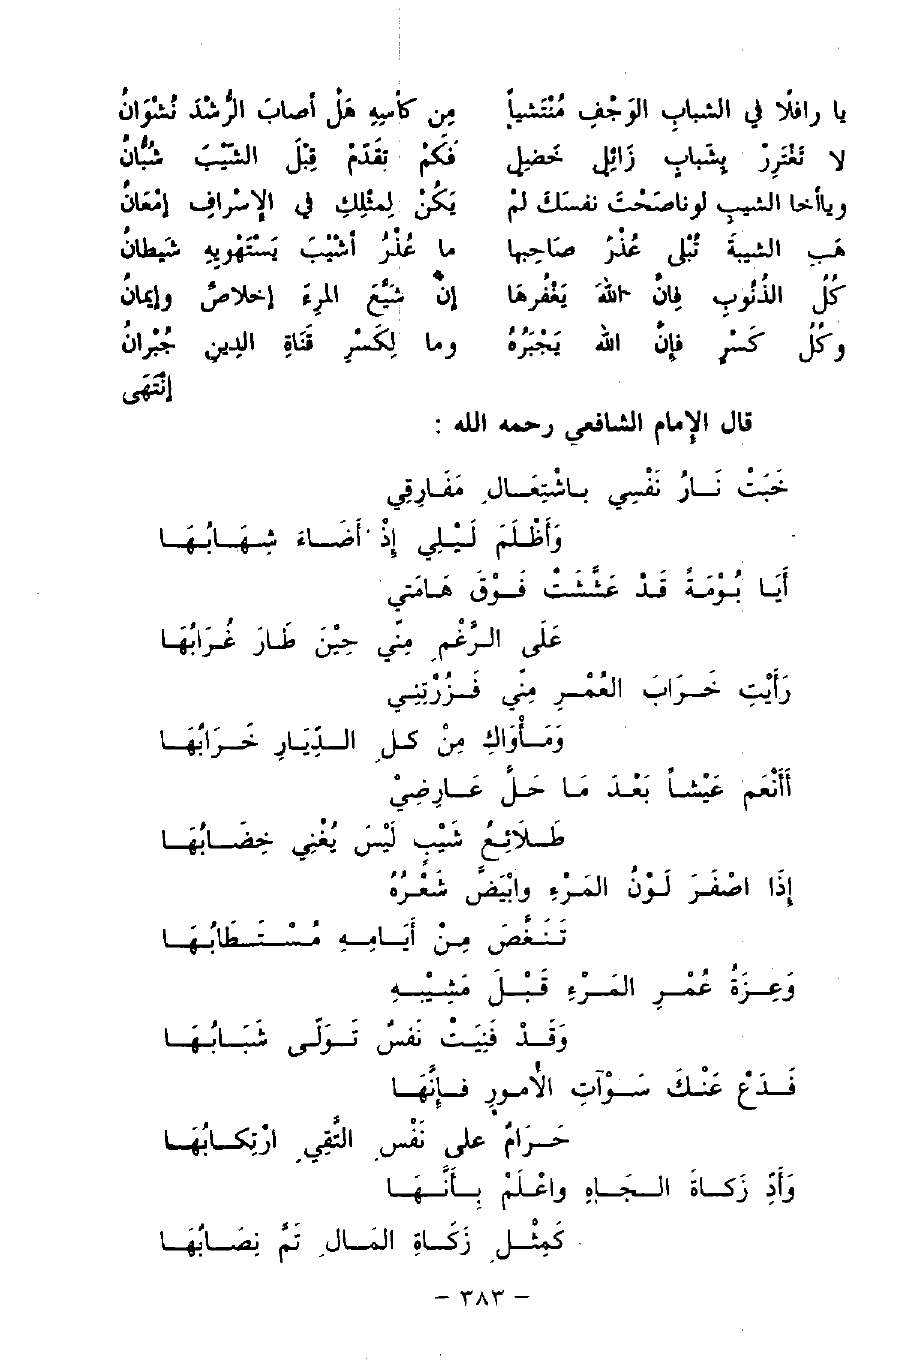 يا رافلًا في الشبابِ الوَحْفِ مُنْتَشياً مِن كأسِهِ هَلْ أصابَ الرُّشْدَ نُشْوَانُ
لا تَغْتَرِرْ بِشَبابٍ زَائِلٍ خَضِلٍ فَكَمْ تَقَدَّمَ قَبْلَ الشَّيْبَ شُبَّانُ
وياأخا الشيبِ لو ناصَحْتَ نفسَكَ لمْ يَكُنْ لِمثْلِكِ في الإِسْرافِ إمْعَانُ
هَبِ الشبيبَةَ تُبْلِي عُذْرَ صَاحِبِها ما عُذْرُ أشْيَبَ يَسْتَهْوِيهِ شَيطانُ
كُلُّ الذُنُوبِ فإنَّ اللهَ يَغْفُرهَا إنْ شَيَّعَ المرءَ إخلاصٌ وإيمانُ
وكُلُّ كَسْرٍ فإنَّ اللهَ يَجْبُرُهُ وما لِكَسْرِ قَنَاةِ الدِينِ جُبْرانُ
إنْتَهَى
قال الإمام الشافعي رحمه الله :
خَبَتْ نَارُ نَفْسِي بِاشْتِعَالِ مَفَارِقِي
وَأَظْلَمَ لَيْلِي إِذْ أَضَاءَ شِهَابُهَا
أَيَا بُوْمَةً قَدْ عَشَّشَتْ فَوْقَ هَامَتي
عَلَى الرُّغْمِ مِنّي حِيْنَ طَارَ غُرَابُهَا
رَأَيْتِ خَرَابَ العُمْرِ مِنّي فَزُرْتِنِي
وَمَأْوَاكِ مِنْ كلِ الدِّيَارِ خَرَابُهَا
أَأَنْعَم عَيْشاً بَعْدَ مَا حَلَّ عَارِضِيْ
طَلَائِعُ شَيْبٍ لَيْسَ يُغْنِي خِضَابُهَا
إِذَا اصْفَرَ لَوْنُ المَرْءِ وابْيَضَّ شَعْرُهُ
تَنَغَّصَ مِنْ أَيَامِهِ مُسْتَطَابُهَا
وَعِزَةُ عُمْرِ المَرْءِ قَبْلَ مَشِيْبِهِ
وَقَدْ فَنِيَتْ نَفسٌ تَوَلَّى شَبَابُهَا
فَدَعْ عَنْكَ سَوْآتِ الأُمورِ فإنَّهَا
حَرَامٌ على نَفْسِ التَّقِي ارْتِكَابُهَا
وَأَدِّ زَكَاةَ الجَاهِ واعْلَمْ بِأَنَّهَا
كَمِثْلِ زَكَاةِ المَالِ تَمَّ نِصَابُهَا
– ٣٨٣ –